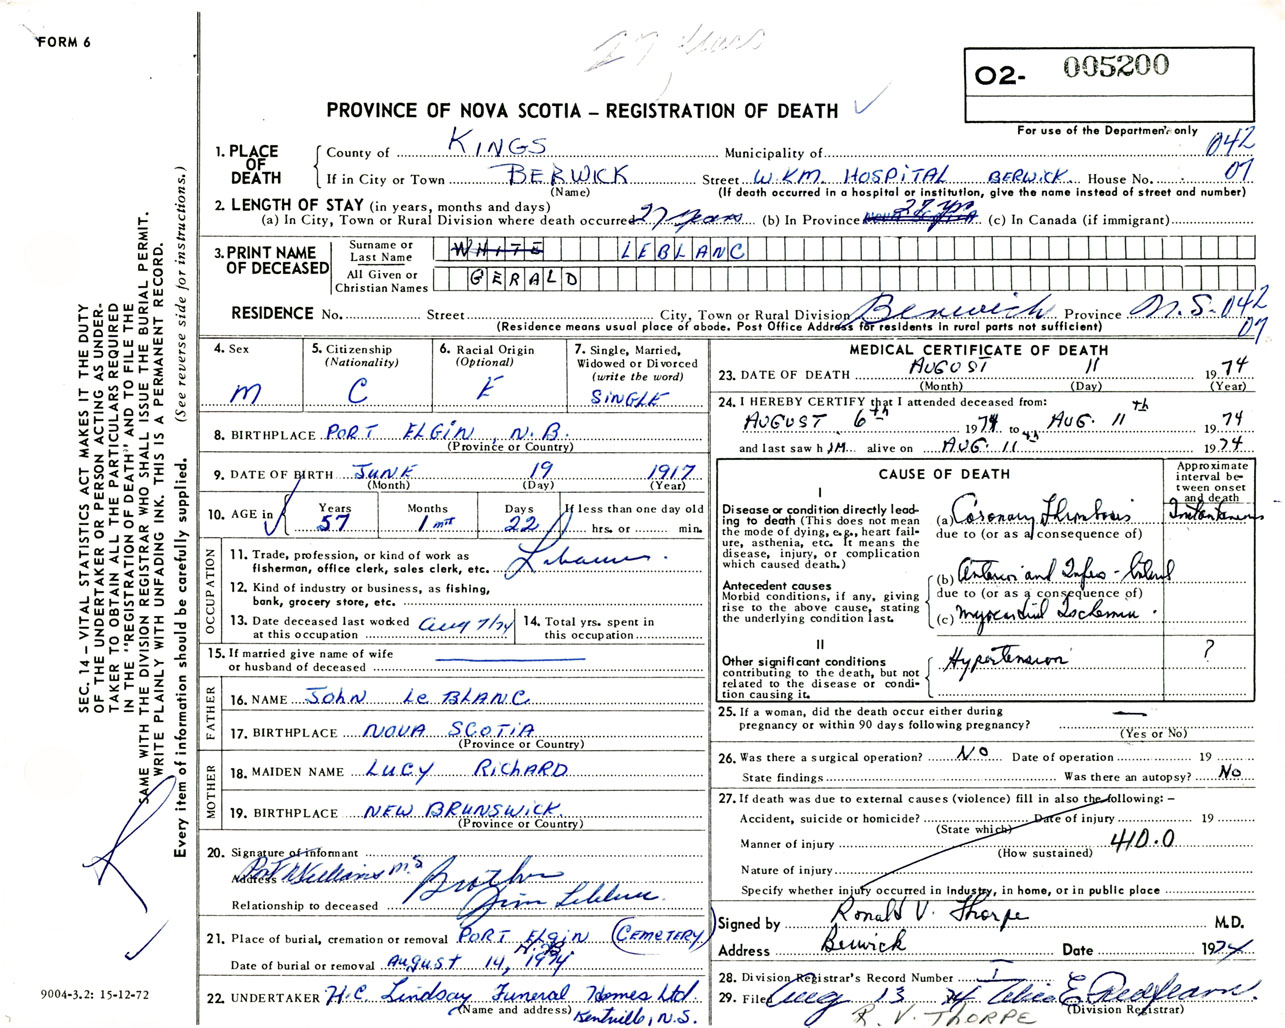 27 Years
FORM 6
O2- 005200
PROVINCE OF NOVA SCOTIA – REGISTRATION OF DEATH
For use of the Department only
1. PLACE OF DEATH
County of KINGS Municipality of 042
If in City or Town BERWICK Street W.K.M. HOSPITAL BERWICK House No. 07
(Name) (If death occurred in a hospital or institution, give the name instead of street and number)
2. LENGTH OF STAY (in years, months and days)
(a) In City, Town or Rural Division where death occurred 27 years (b) In Province 27 yrs (c) In Canada (if immigrant)
3. PRINT NAME OF DECEASED
Surname or Last Name WHITE LEBLANC
All Given or Christian Names GERALD
RESIDENCE No. Street City, Town or Rural Division Berwick Province N.S. 042
(Residence means usual place of abode. Post Office Address for residents in rural parts not sufficient) 07
4. Sex M
5. Citizenship (Nationality) C
6. Racial Origin (Optional) E
7. Single, Married, Widowed or Divorced (write the word) SINGLE
8. BIRTHPLACE PORT ELGIN, N.B.
(Province or Country)
9. DATE OF BIRTH JUNE 19 1917
(Month) (Day) (Year)
10. AGE in Years 57 Months 1 mt Days 22 If less than one day old hrs. or min.
OCCUPATION
11. Trade, profession, or kind of work as fisherman, office clerk, sales clerk, etc. Labourer.
12. Kind of industry or business, as fishing, bank, grocery store, etc.
13. Date deceased last worked at this occupation Aug 7/74
14. Total yrs. spent in this occupation
15. If married give name of wife or husband of deceased
FATHER
16. NAME JOHN Le BLANC
17. BIRTHPLACE NOVA SCOTIA
(Province or Country)
MOTHER
18. MAIDEN NAME LUCY RICHARD
19. BIRTHPLACE NEW BRUNSWICK
(Province or Country)
20. Signature of informant
Address Port Williams N.S
Relationship to deceased Brother Jim Leblanc
21. Place of burial, cremation or removal PORT Elgin N.B. (CEMETERY)
Date of burial or removal August 14, 1974
22. UNDERTAKER H.C. Lindsay Funeral Homes Ltd.
(Name and address) Kentville, N.S.
MEDICAL CERTIFICATE OF DEATH
23. DATE OF DEATH AUGUST 11 1974
(Month) (Day) (Year)
24. I HEREBY CERTIFY that I attended deceased from:
AUGUST 6th 1974 to AUG. 11th 1974
and last saw h IM alive on AUG. 11th 1974
CAUSE OF DEATH
Approximate interval between onset and death
I
Disease or condition directly leading to death (This does not mean the mode of dying, e.g., heart failure, asthenia, etc. It means the disease, injury, or complication which caused death.)
(a) Coronary Thrombosis Instantaneous
due to (or as a consequence of)
Antecedent causes
Morbid conditions, if any, giving rise to the above cause, stating the underlying condition last.
(b) Anterior and Infero-lateral
due to (or as a consequence of)
(c) Myocardial Ischemia.
II
Other significant conditions contributing to the death, but not related to the disease or condition causing it.
Hypertension ?
25. If a woman, did the death occur either during pregnancy or within 90 days following pregnancy? —
(Yes or No)
26. Was there a surgical operation? No Date of operation 19
State findings Was there an autopsy? No
27. If death was due to external causes (violence) fill in also the following: –
Accident, suicide or homicide? Date of injury 19
(State which)
Manner of injury 410.0
(How sustained)
Nature of injury
Specify whether injury occurred in industry, in home, or in public place
Signed by Ronald V. Thorpe M.D.
Address Berwick Date 1974
28. Division Registrar's Record Number 1
29. Filed Aug 13 74 Alice E Redfearn.
(Division Registrar)
R. V. THORPE
SEC. 14 – VITAL STATISTICS ACT MAKES IT THE DUTY
OF THE UNDERTAKER OR PERSON ACTING AS UNDER-
TAKER TO OBTAIN ALL THE PARTICULARS REQUIRED
IN THE "REGISTRATION OF DEATH" AND TO FILE THE
SAME WITH THE DIVISION REGISTRAR WHO SHALL ISSUE THE BURIAL PERMIT.
WRITE PLAINLY WITH UNFADING INK. THIS IS A PERMANENT RECORD.
Every item of information should be carefully supplied. (See reverse side for instructions.)
9004-3.2: 15-12-72